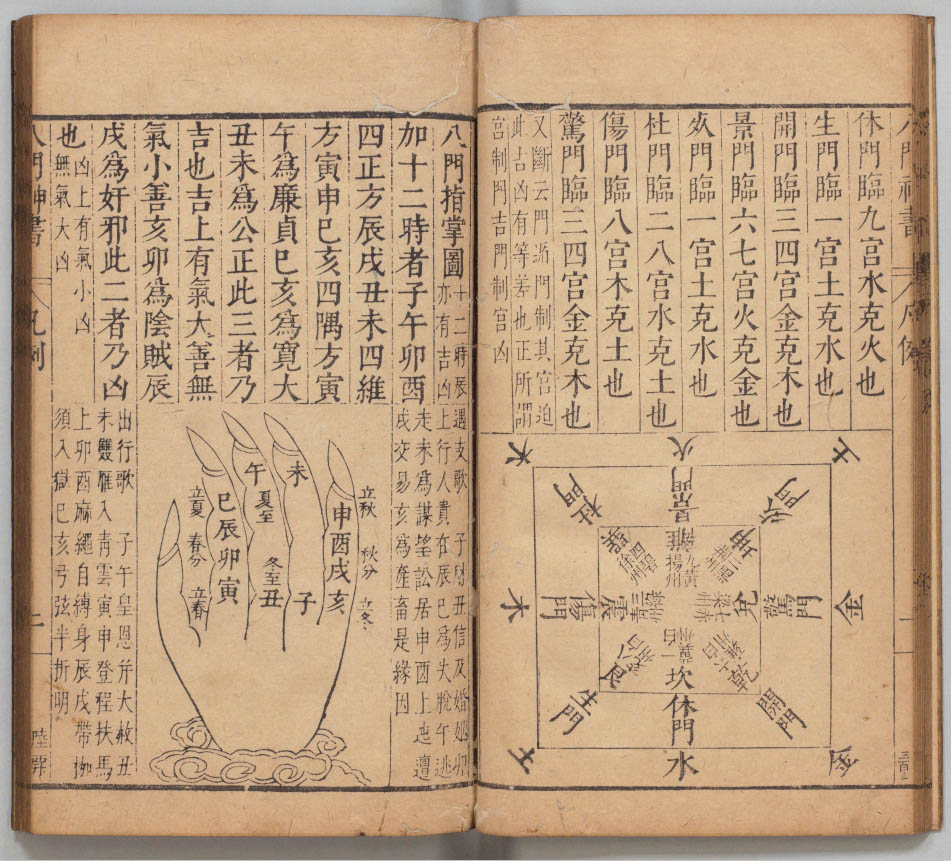 休門臨九宮水克火也
生門臨一宮土克水也
開門臨三四宮金克木也
景門臨六七宮火克金也
死門臨一宮土克水也
杜門臨二八宮水克土也
傷門臨八宮木克土也
驚門臨三四宮金克木也
又斷云門迫門制其宮迫
此吉凶有等差也正所謂
宮制門吉門制宮凶
土
火
木
死門
景門
杜門
坤
離
九黃
揚州
四碧
徐州
金
驚門
兌
震
傷門
木
乾
坎
艮
開門
休門
生門
金
水
土
八門指掌圖
十二時辰
亦有吉凶
加十二時者子午卯酉
四正方辰戌丑未四維
方寅申巳亥四隅方寅
午為廉貞巳亥為寬大
丑未為公正此三者乃
吉也吉上有氣大善無
氣小善亥卯為陰賊辰
戌為奸邪此二者乃凶
也
凶上有氣小凶
無氣大凶
遇支歌
子財丑信及婚姻卯
上行人貴在辰巳為失脫午逃
走未為謀望訟居申酉上迍邅
戌交易亥為產畜是緣因
立秋
秋分
立冬
申酉戌亥
未
子
午
夏至
冬至
丑
巳辰卯寅
立夏
春分
立春
出行歌
子午皇恩并大赦丑
未雙雁入青雲寅申登程扶馬
上卯酉麻繩自縛身辰戌帶枷
須入獄巳亥弓弦半折明
八門神書
凡例
二